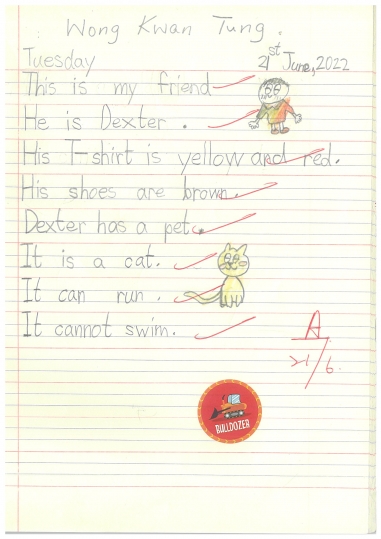 Wong Kwan Tung.
Tuesday
21st June, 2022
This is my friend
He is Dexter.
His T-shirt is yellow and red.
His shoes are brown.
Dexter has a pet.
It is a cat.
It can run.
It cannot swim.
A
21/6.
BULLDOZER